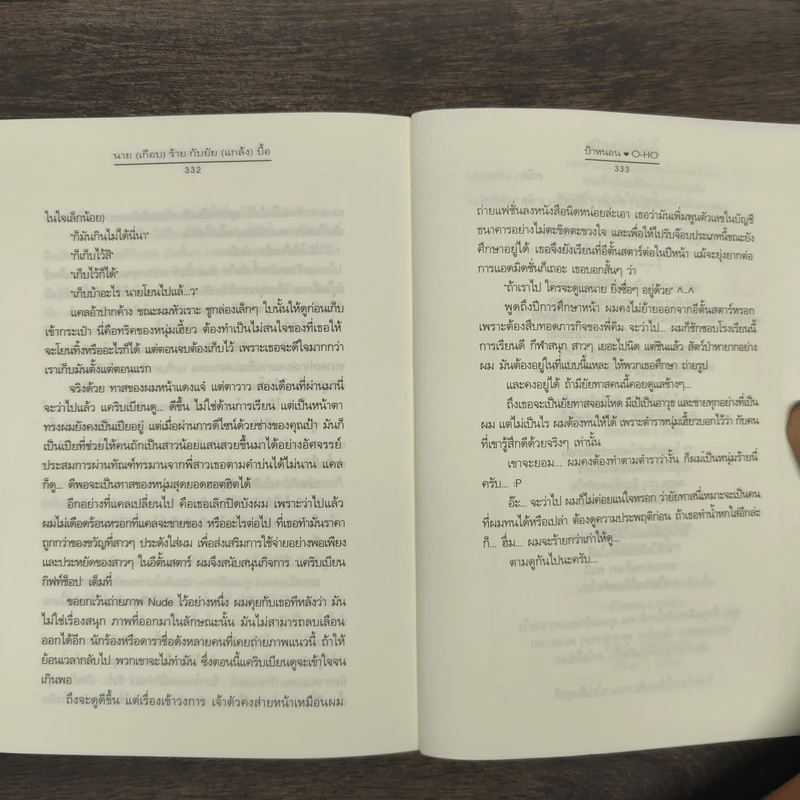 นาย (เกือบ) ร้าย กับยัย (แกล้ง) บื้อ
332
ในใจเล็กน้อย)
"ก็มันกินไม่ได้นี่นา"
"ก็เก็บไว้สิ"
"เก็บไว้ก็ได้"
"เก็บบ้าอะไร นายโยนไปแล้...ว"
แคลอ้าปากค้าง ขณะผมหัวเราะ ชูกล่องเล็กๆ ใบนั้นให้ดูก่อนเก็บ
เข้ากระเป๋า นี่คือทริคของหนุ่มเฮี้ยว ต้องทำเป็นไม่สนใจของที่เธอให้
จะโยนทิ้งหรืออะไรก็ได้ แต่ตอนจบต้องเก็บไว้ เพราะเธอจะดีใจมากกว่า
เราเก็บมันตั้งแต่ตอนแรก
จริงด้วย ทาสของผมหน้าแดงแจ๋ แต่ตาวาว สองเดือนที่ผ่านมานี่
จะว่าไปแล้ว แคริบเบียนดู... ดีขึ้น ไม่ใช่ด้านการเรียน แต่เป็นหน้าตา
ทรงผมยังคงเป็นเปียอยู่ แต่เมื่อผ่านการดีไซน์ด้วยช่างของคุณป้า มันก็
เป็นเปียที่ช่วยให้คนถักเป็นสาวน้อยแสนสวยขึ้นมาได้อย่างอัศจรรย์
ประสบการผ่านทัณฑ์ทรมานจากพี่สาวเธอตามคำบ่นได้ไม่นาน แคล
ก็ดู... ดีพอจะเป็นทาสของหนุ่มสุดยอดฮอตฮิตได้
อีกอย่างที่แคลเปลี่ยนไป คือเธอเลิกปิดบังผม เพราะว่าไปแล้ว
ผมไม่เดือดร้อนหรอกที่แคลจะขายของ หรืออะไรต่อไป ที่เธอทำมันราคา
ถูกกว่าของขวัญที่สาวๆ ประดังใส่ผม เพื่อส่งเสริมการใช้จ่ายอย่างพอเพียง
และประหยัดของสาวๆ ในอีตั้นสตาร์ ผมจึงสนับสนุนกิจการ 'แคริบเบียน
กิฟท์ช็อป' เต็มที่
ขอยกเว้นถ่ายภาพ Nude ไว้อย่างหนึ่ง ผมคุยกับเธอทีหลังว่า มัน
ไม่ใช่เรื่องสนุก ภาพที่ออกมาในลักษณะนั้น มันไม่สามารถลบเลือน
ออกได้อีก นักร้องหรือดาราชื่อดังหลายคนที่เคยถ่ายภาพแนวนี้ ถ้าให้
ย้อนเวลากลับไป พวกเขาจะไม่ทำมัน ซึ่งตอนนี้แคริบเบียนดูจะเข้าใจจน
เกินพอ
ถึงจะดูดีขึ้น แต่เรื่องเข้าวงการ เจ้าตัวคงส่ายหน้าเหมือนผม
ป้าหนอน ♥ O-HO
333
ถ่ายแฟชั่นลงหนังสือนิดหน่อยล่ะเอา เธอว่ามันเพิ่มพูนตัวเลขในบัญชี
ธนาคารอย่างไม่ตะขิดตะขวงใจ และเพื่อให้ไปรับจ๊อบประเภทนี้ขณะยัง
ศึกษาอยู่ได้ เธอจึงยังเรียนที่อีตั้นสตาร์ต่อในปีหน้า แม้จะยุ่งยากต่อ
การแอดมิดชั่นก็เถอะ เธอบอกสั้นๆ ว่า
"ถ้าเราไป ใครจะดูแลนาย ยิ่งซื่อๆ อยู่ด้วย" ^..^
พูดถึงปีการศึกษาหน้า ผมคงไม่ย้ายออกจากอีตั้นสตาร์หรอก
เพราะต้องสืบทอดภารกิจของพี่คิม จะว่าไป... ผมก็ชักชอบโรงเรียนนี้
การเรียนดี กีฬาสนุก สาวๆ เยอะไปนิด แต่ชินแล้ว สัตว์ป่าหายากอย่าง
ผม มันต้องอยู่ในที่แบบนี้แหละ ให้พวกเธอศึกษา ถ่ายรูป
และคงอยู่ได้ ถ้ามียัยทาสคนนี้คอยดูแลข้างๆ...
ถึงเธอจะเป็นยัยทาสจอมโหด มีเป้เป็นอาวุธ และขายทุกอย่างที่เป็น
ผม แต่ไม่เป็นไร ผมต้องทนให้ได้ เพราะตำราหนุ่มเฮี้ยวบอกไว้ว่า กับคน
ที่เขารู้สึกดีด้วยจริงๆ เท่านั้น
เขาจะยอม... ผมคงต้องทำตามตำราว่างั้น ก็ผมเป็นหนุ่มร้ายนี่
ครับ... :P
อ๊ะ... จะว่าไป ผมก็ไม่ค่อยแน่ใจหรอก ว่ายัยทาสนี่เหมาะจะเป็นคน
ที่ผมทนได้หรือเปล่า ต้องดูความประพฤติก่อน ถ้าเธอทำน้ำหกใส่อีกล่ะ
ก็... อืม... ผมจะร้ายกว่าเก่าให้ดู...
ตามดูกันไปนะครับ...